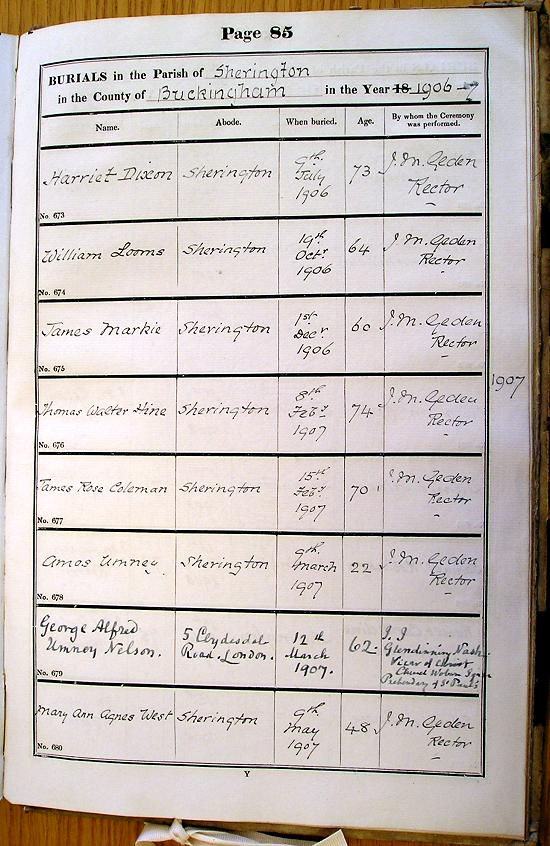 Page 85
BURIALS in the Parish of Sherington
in the County of Buckingham in the Year 18 1906-7
Name. Abode. When buried. Age. By whom the Ceremony
was performed.
Harriet Dixon Sherington 9th July 1906 73 J. M. Geden Rector
No. 673
William Looms Sherington 19th Octr 1906 64 J. M. Geden Rector
No. 674
James Markie Sherington 1st Decr 1906 60 J. M. Geden Rector
No. 675
1907
Thomas Walter Hine Sherington 8th Feby 1907 74 J. M. Geden Rector
No. 676
James Rose Coleman Sherington 15th Feby 1907 70 J. M. Geden Rector
No. 677
Amos Umney Sherington 9th March 1907 22 J. M. Geden Rector
No. 678
George Alfred
Umney Nelson.
5 Clydesdale
Road, London.
12th
March
1907.
62.
Glendinning Nash
Vicar of Christ
Church Woburn Square
Prebendary of St Pauls
No. 679
Mary Ann Agnes West Sherington 9th May 1907 48 J. M. Geden Rector
No. 680
Y